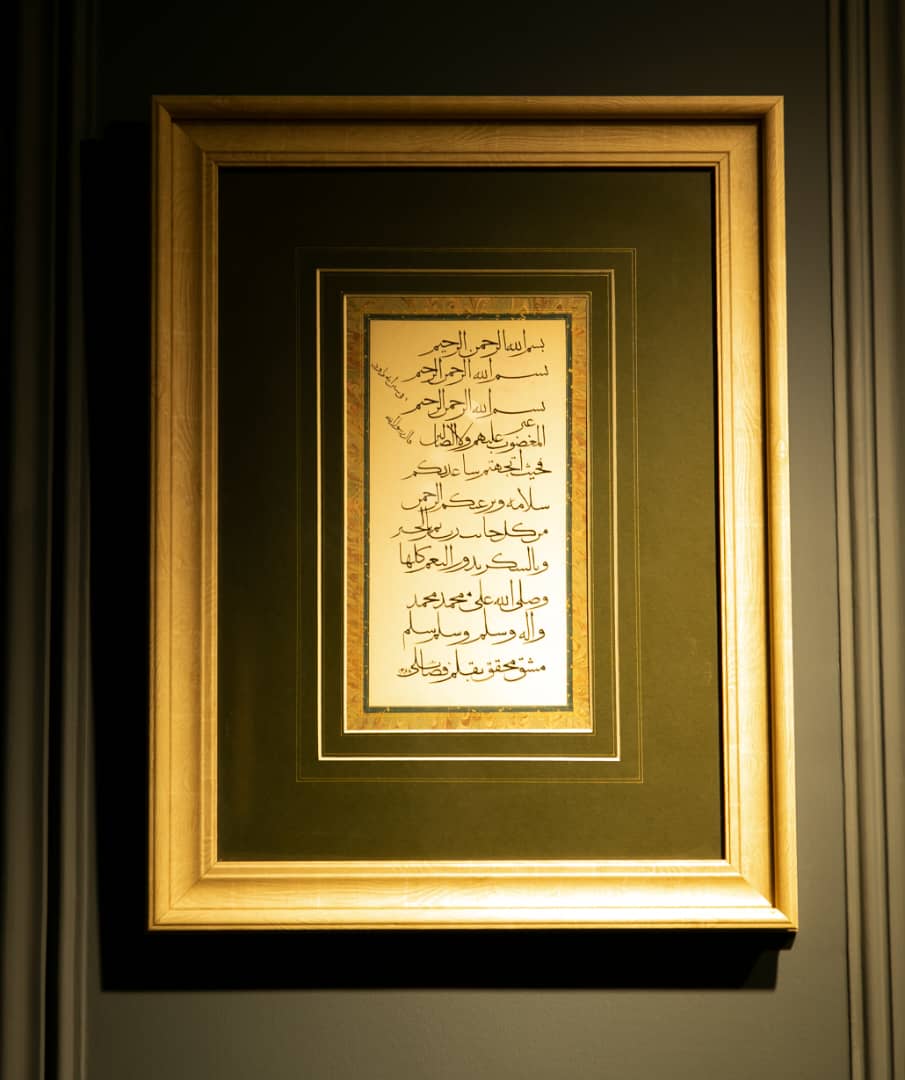 بسم الله الرحمن الرحيم
بسم الله الرحمن الرحيم
بسم الله الرحمن الرحيم
غير
المغضوب عليهم ولا الضالين
فحيث اتجهتم ساعديكم
سلامه ويرعيكم الرحمن
من كل جانب رب تمم بالخير
وبالسكر تدور النعم كلها
وصلى الله على محمد محمد
واله وسلم وسلم سلم
مشق محقق بقلم
قال رسول الله